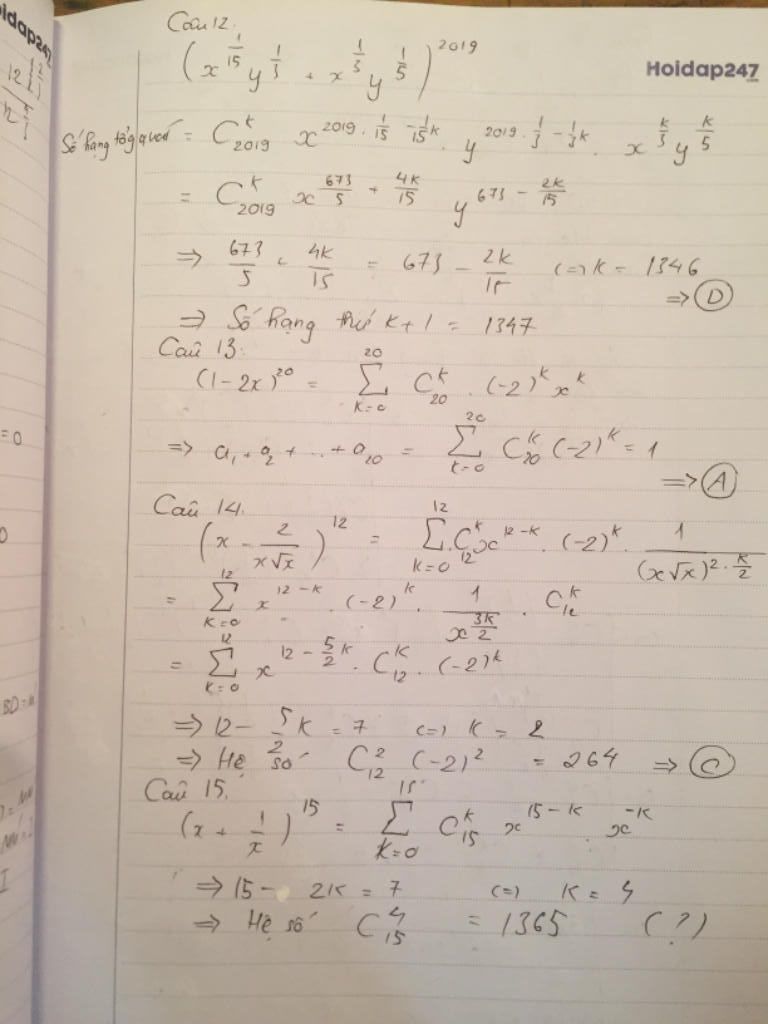 Câu 12.
Hoidap247
(x^{1/15} y^{1/3} + x^{1/3} y^{1/5})^{2019}
Số hạng tổng quát = C_{2019}^{k} x^{2019 · 1/15 - 1/15 k} . y^{2019 · 1/3 - 1/3 k} . x^{k/3} y^{k/5}
= C_{2019}^{k} x^{673/5 + 4k/15} y^{673 - 2k/15}
=> 673/5 + 4k/15 = 673 - 2k/15 (=) k = 1346
=> (D)
=> Số hạng thứ k+1 = 1347
Câu 13.
(1-2x)^{20} = \sum_{k=0}^{20} C_{20}^{k} . (-2)^{k} x^{k}
=> a_1 + a_2 + ... + a_{20} = \sum_{k=0}^{20} C_{20}^{k} (-2)^{k} = 1
=> (A)
Câu 14.
(x - 2/(x√x))^{12} = \sum_{k=0}^{12} C_{12}^{k} x^{12-k} . (-2)^{k} . 1/(x√x)^{2 · k/2}
= \sum_{k=0}^{12} x^{12-k} . (-2)^{k} . 1/x^{3k/2} . C_{12}^{k}
= \sum_{k=0}^{12} x^{12 - 5/2 k} . C_{12}^{k} . (-2)^{k}
=> 12 - 5/2 k = 7 (=) k = 2
=> Hệ số C_{12}^{2} (-2)^{2} = 264 => (C)
Câu 15.
(x + 1/x)^{15} = \sum_{k=0}^{15} C_{15}^{k} x^{15-k} . x^{-k}
=> 15 - 2k = 7 (=) k = 4
=> Hệ số C_{15}^{4} = 1365 (?)